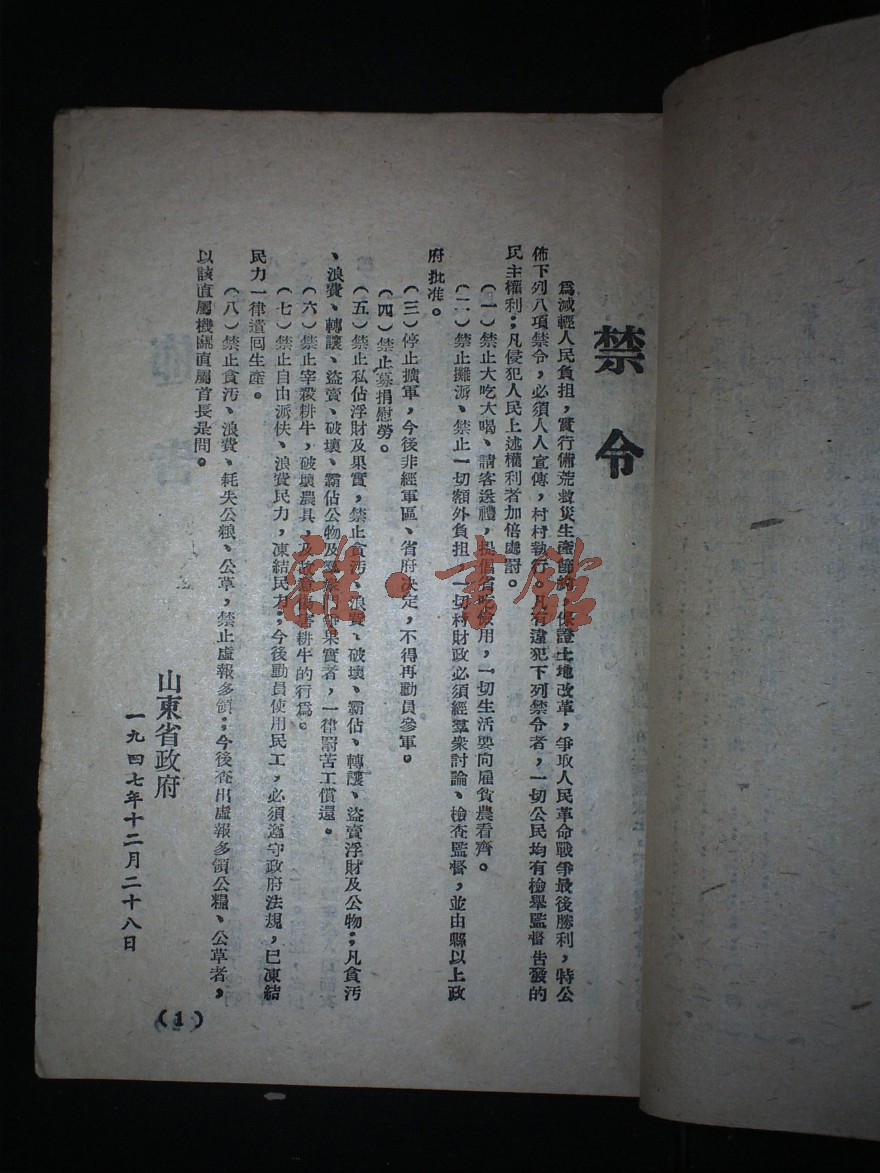 禁令
為減輕人民負担，實行備荒救災生產節約，保證土地改革，爭取人民革命戰爭最後勝利，特公
佈下列八項禁令，必須人人宣傳，村村執行。凡有違犯下列禁令者，一切公民均有檢舉監督告發的
民主權利；凡侵犯人民上述權利者加倍處罰。
（一）禁止大吃大喝、請客送禮，提倡省吃儉用，一切生活要向雇貧農看齊。
（二）禁止攤派、禁止一切額外負担，一切村財政必須經羣衆討論、檢查監督，並由縣以上政
府批准。
（三）停止擴軍，今後非經軍區、省府決定，不得再動員參軍。
（四）禁止募捐慰勞。
（五）禁止私佔浮財及果實，禁止貪汚、浪費、破壞、霸佔、轉讓、盜賣浮財及公物；凡貪汚
、浪費、轉讓、盜賣、破壞、霸佔公物及羣衆鬥爭果實者，一律罰苦工償還。
（六）禁止宰殺耕牛，破壞農具，及故意傷害耕牛的行為。
（七）禁止自由派伕、浪費民力，凍結民力；今後動員使用民工，必須遵守政府法規，已凍結
民力一律遣回生產。
（八）禁止貪汚、浪費、耗失公粮、公草，禁止虛報多領；今後查出虛報多領公糧、公草者，
以該直屬機關直屬首長是問。
山東省政府
一九四七年十二月二十八日
（1）
雜·書館